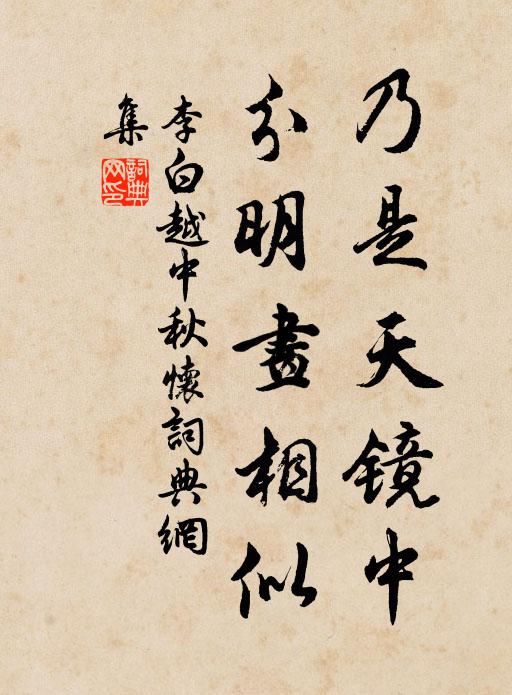 乃是天镜中
分明畫相似
李白越中秋懷詞典網
集
詞典网印